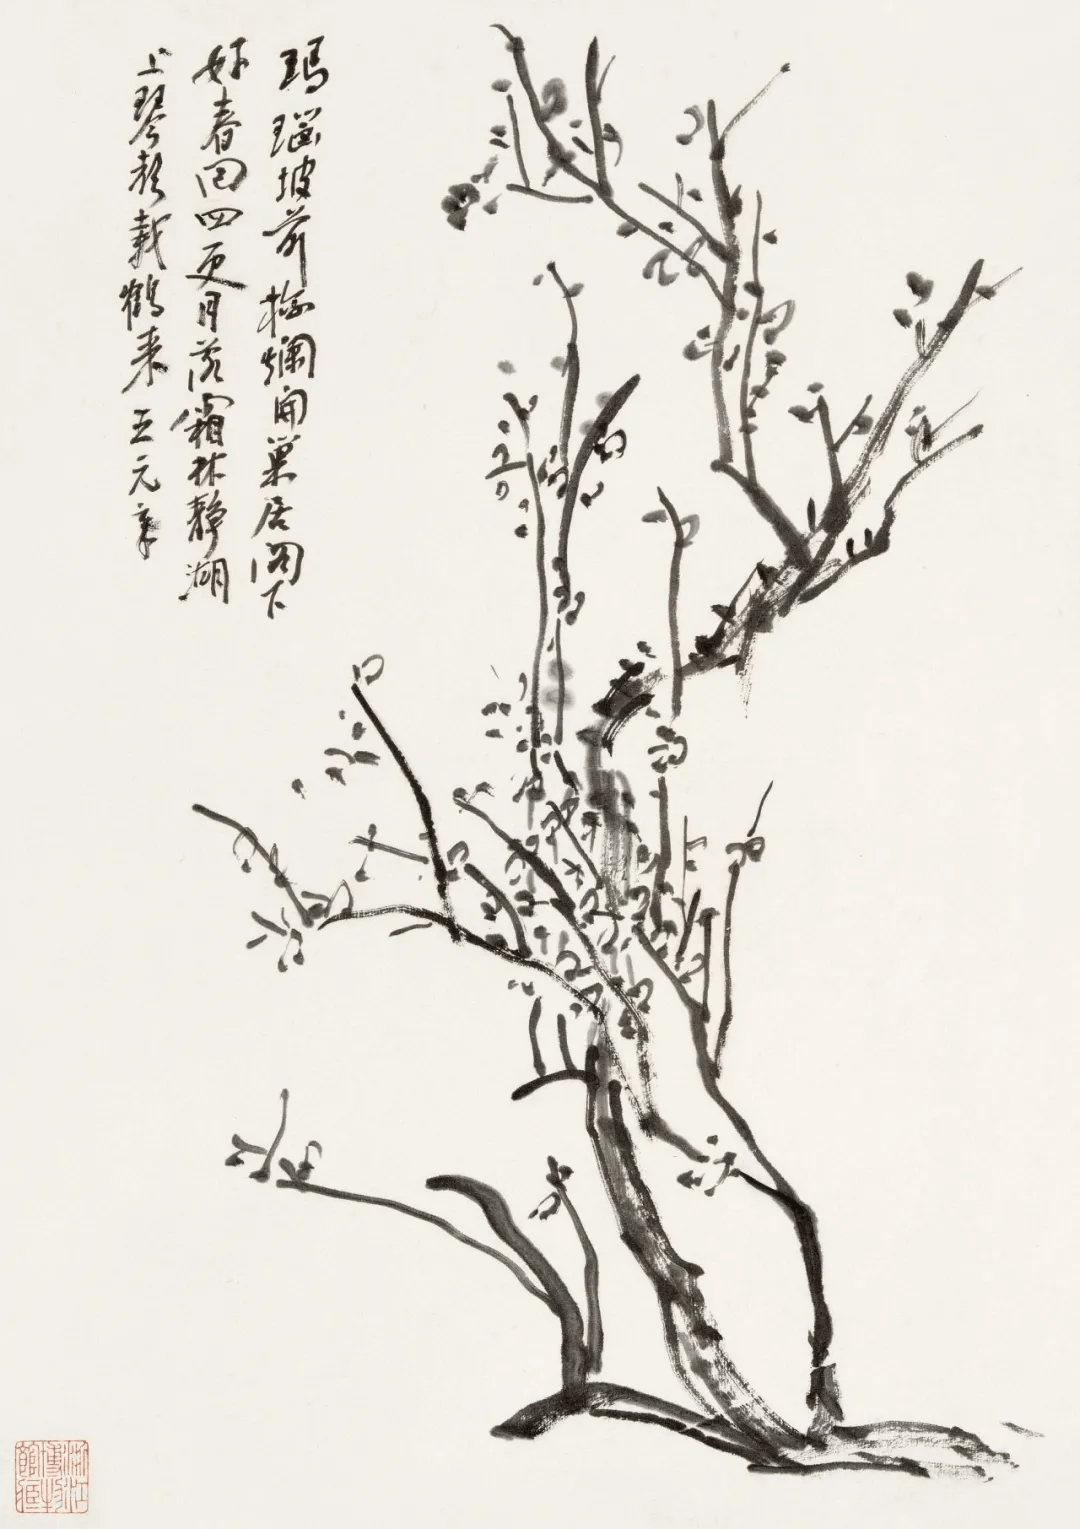 瑪瑙坡前梅爛開巢居閣下
好春回四更月落霜林靜湖
上琴聲載鶴來 王元章
浙江
博物
館